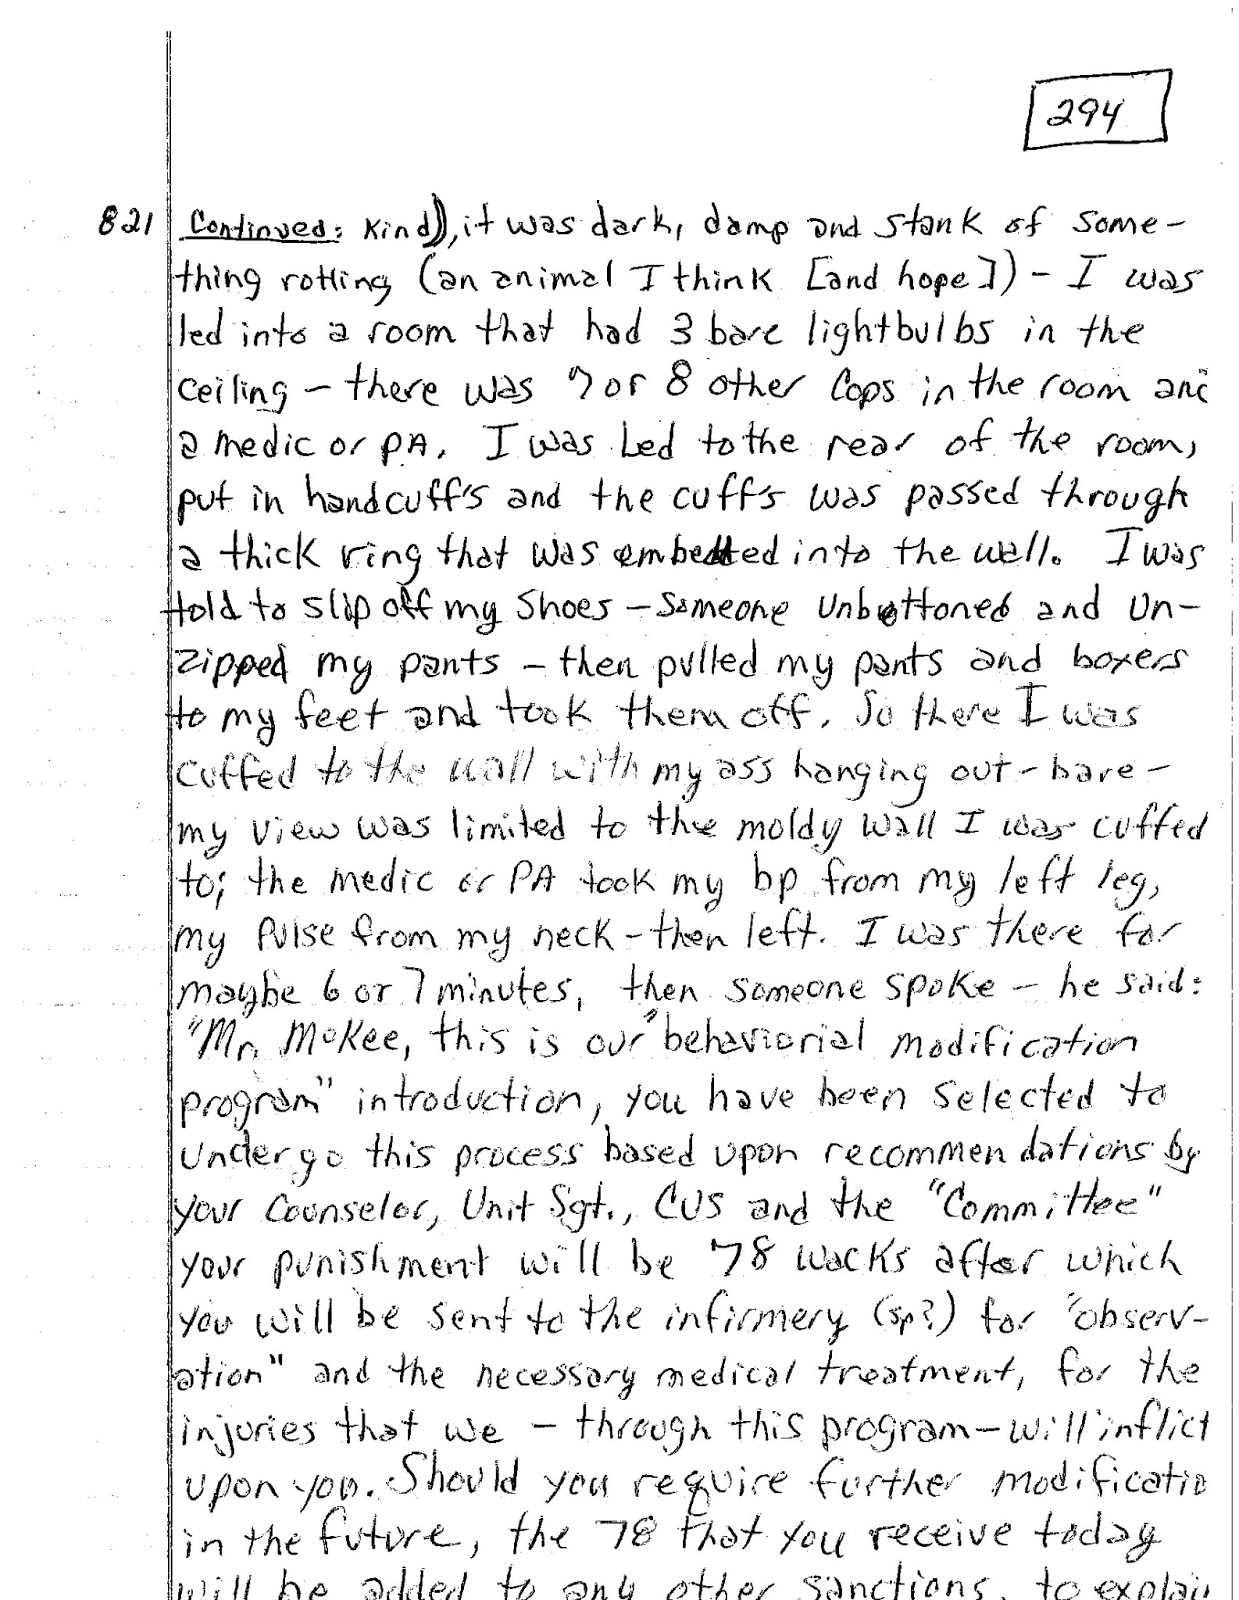 294
821 Continued: Kind)), it was dark, damp and stank of some-
thing rotting (an animal I think [and hope]) - I was
led into a room that had 3 bare lightbulbs in the
ceiling - there was 7 or 8 other Cops in the room and
a medic or PA. I was Led to the rear of the room,
put in handcuff's and the cuff's was passed through
a thick ring that was embedded into the wall. I was
told to slip off my shoes - Someone unbuttoned and un-
zipped my pants - then pulled my pants and boxers
to my feet and took them off. So there I was
cuffed to the wall with my ass hanging out - bare -
my view was limited to the moldy wall I was cuffed
to; the medic or PA took my bp from my left leg,
my pulse from my neck - then left. I was there for
maybe 6 or 7 minutes, then someone spoke - he said:
"Mr. McKee, this is our "behaviorial modification
program" introduction, you have been selected to
undergo this process based upon recommendations by
your Counselor, Unit Sgt., CUS and the "Committee"
your punishment will be 78 wacks after which
you will be sent to the infirmery (sp?) for "observ-
ation" and the necessary medical treatment, for the
injuries that we - through this program - will inflict
upon you. Should you require further modificatio
in the future, the 78 that you receive today
will be added to any other sanctions, to explai